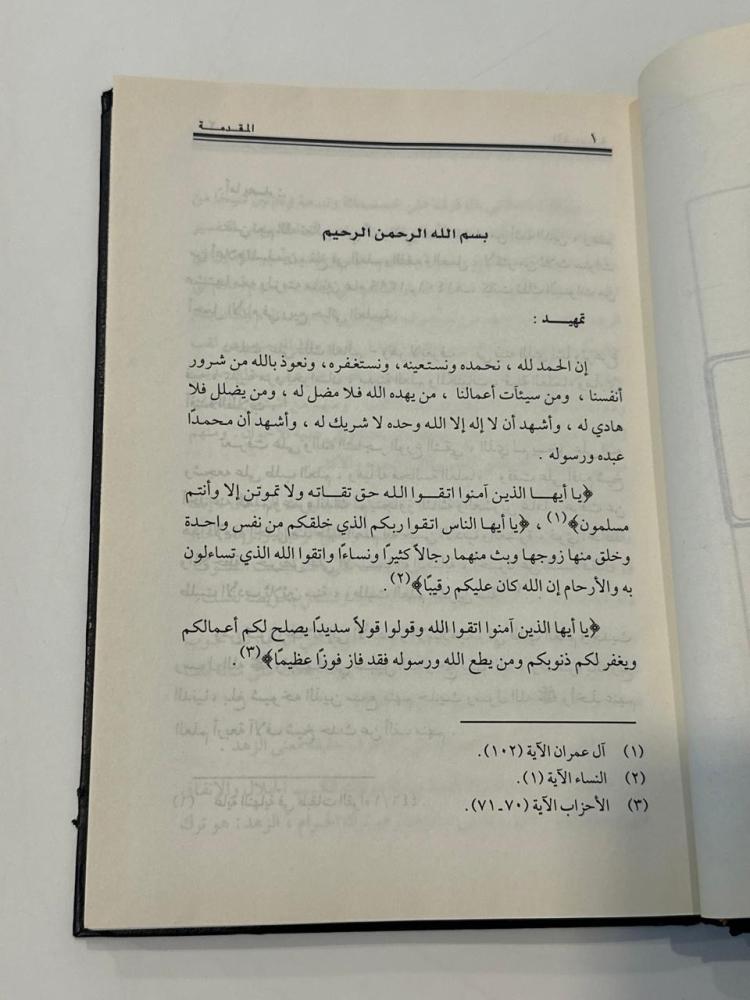 ١ المقدمة
بسم الله الرحمن الرحيم
تمهيد :
إن الحمد لله ، نحمده ونستعينه، ونستغفره، ونعوذ بالله من شرور
أنفسنا ، ومن سيئآت أعمالنا ، من يهده الله فلا مضل له ، ومن يضلل فلا
هادي له ، وأشهد أن لا إله إلا الله وحده لا شريك له ، وأشهد أن محمدًا
عبده ورسوله .
﴿يا أيها الذين آمنوا اتقوا الله حق تقاته ولا تموتن إلا وأنتم
مسلمون﴾(١) ، ﴿يا أيها الناس اتقوا ربكم الذي خلقكم من نفس واحدة
وخلق منها زوجها وبث منهما رجالاً كثيرًا ونساءًا واتقوا الله الذي تساءلون
به والأرحام إن الله كان عليكم رقيبًا﴾(٢) .
﴿يا أيها الذين آمنوا اتقوا الله وقولوا قولاً سديدًا يصلح لكم أعمالكم
ويغفر لكم ذنوبكم ومن يطع الله ورسوله فقد فاز فوزًا عظيمًا﴾(٣) .
(١) آل عمران الآية (١٠٢) .
(٢) النساء الآية (١) .
(٣) الأحزاب الآية (٧٠-٧١) .